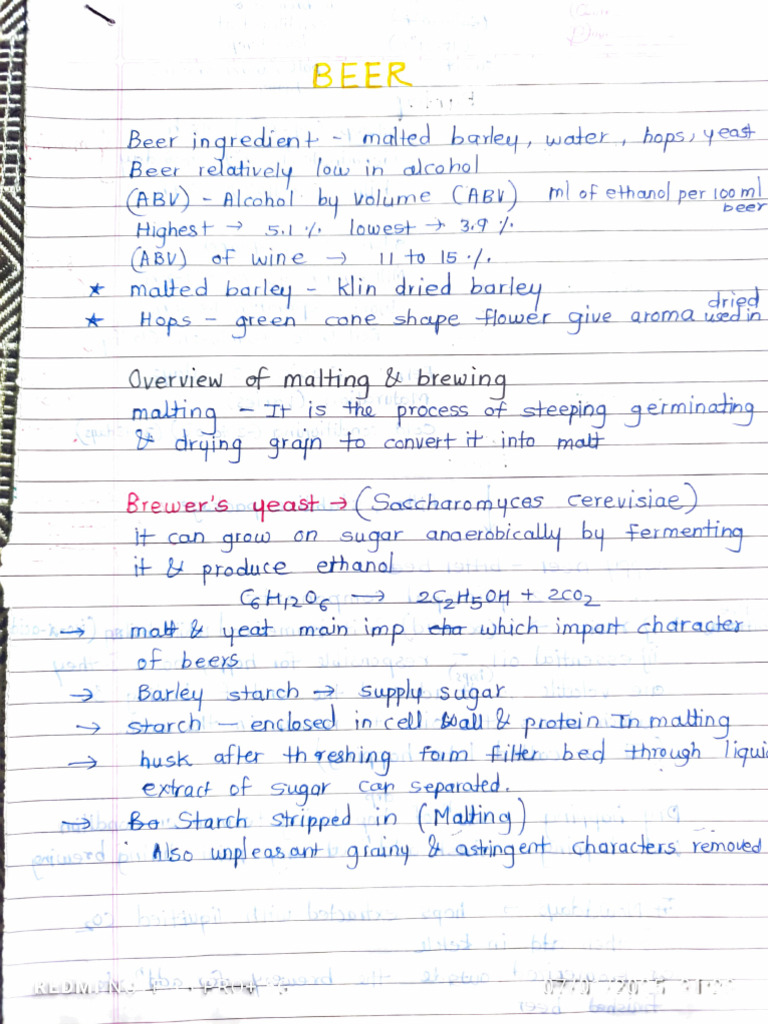 BEER
Beer ingredient - malted barley, water, hops, yeast
Beer relatively low in alcohol
(ABV) - Alcohol by volume (ABV) ml of ethanol per 100 ml beer
Highest → 5.1 % lowest → 3.9 %
(ABV) of wine → 11 to 15 %
* malted barley - klin dried barley
* Hops - green cone shape flower give aroma dried used in
Overview of malting & brewing
malting - It is the process of steeping germinating
& drying grain to convert it into malt
Brewer's yeast → (Saccharomyces cerevisiae)
it can grow on sugar anaerobically by fermenting
it & produce ethanol
C6H12O6 → 2C2H5OH + 2CO2
→ malt & yeat main imp cha which impart character
of beers
→ Barley starch → supply sugar
→ starch - enclosed in cell wall & protein In malting
→ husk after threshing form filter bed through liquid
extract of sugar can separated.
→ Ba Starch stripped in (Malting)
Also unpleasant grainy & astringent characters removed